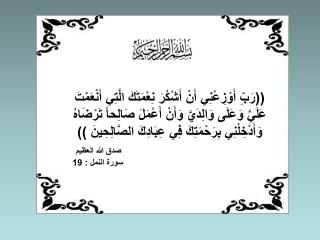 بسم الله الرحمن الرحيم
((رَبِّ أَوْزِعْنِي أَنْ أَشْكُرَ نِعْمَتَكَ الَّتِي أَنْعَمْتَ
عَلَيَّ وَعَلَى وَالِدَيَّ وَأَنْ أَعْمَلَ صَالِحاً تَرْضَاهُ
وَأَدْخِلْنِي بِرَحْمَتِكَ فِي عِبَادِكَ الصَّالِحِينَ ))
صدق الله العظيم
سورة النمل : 19